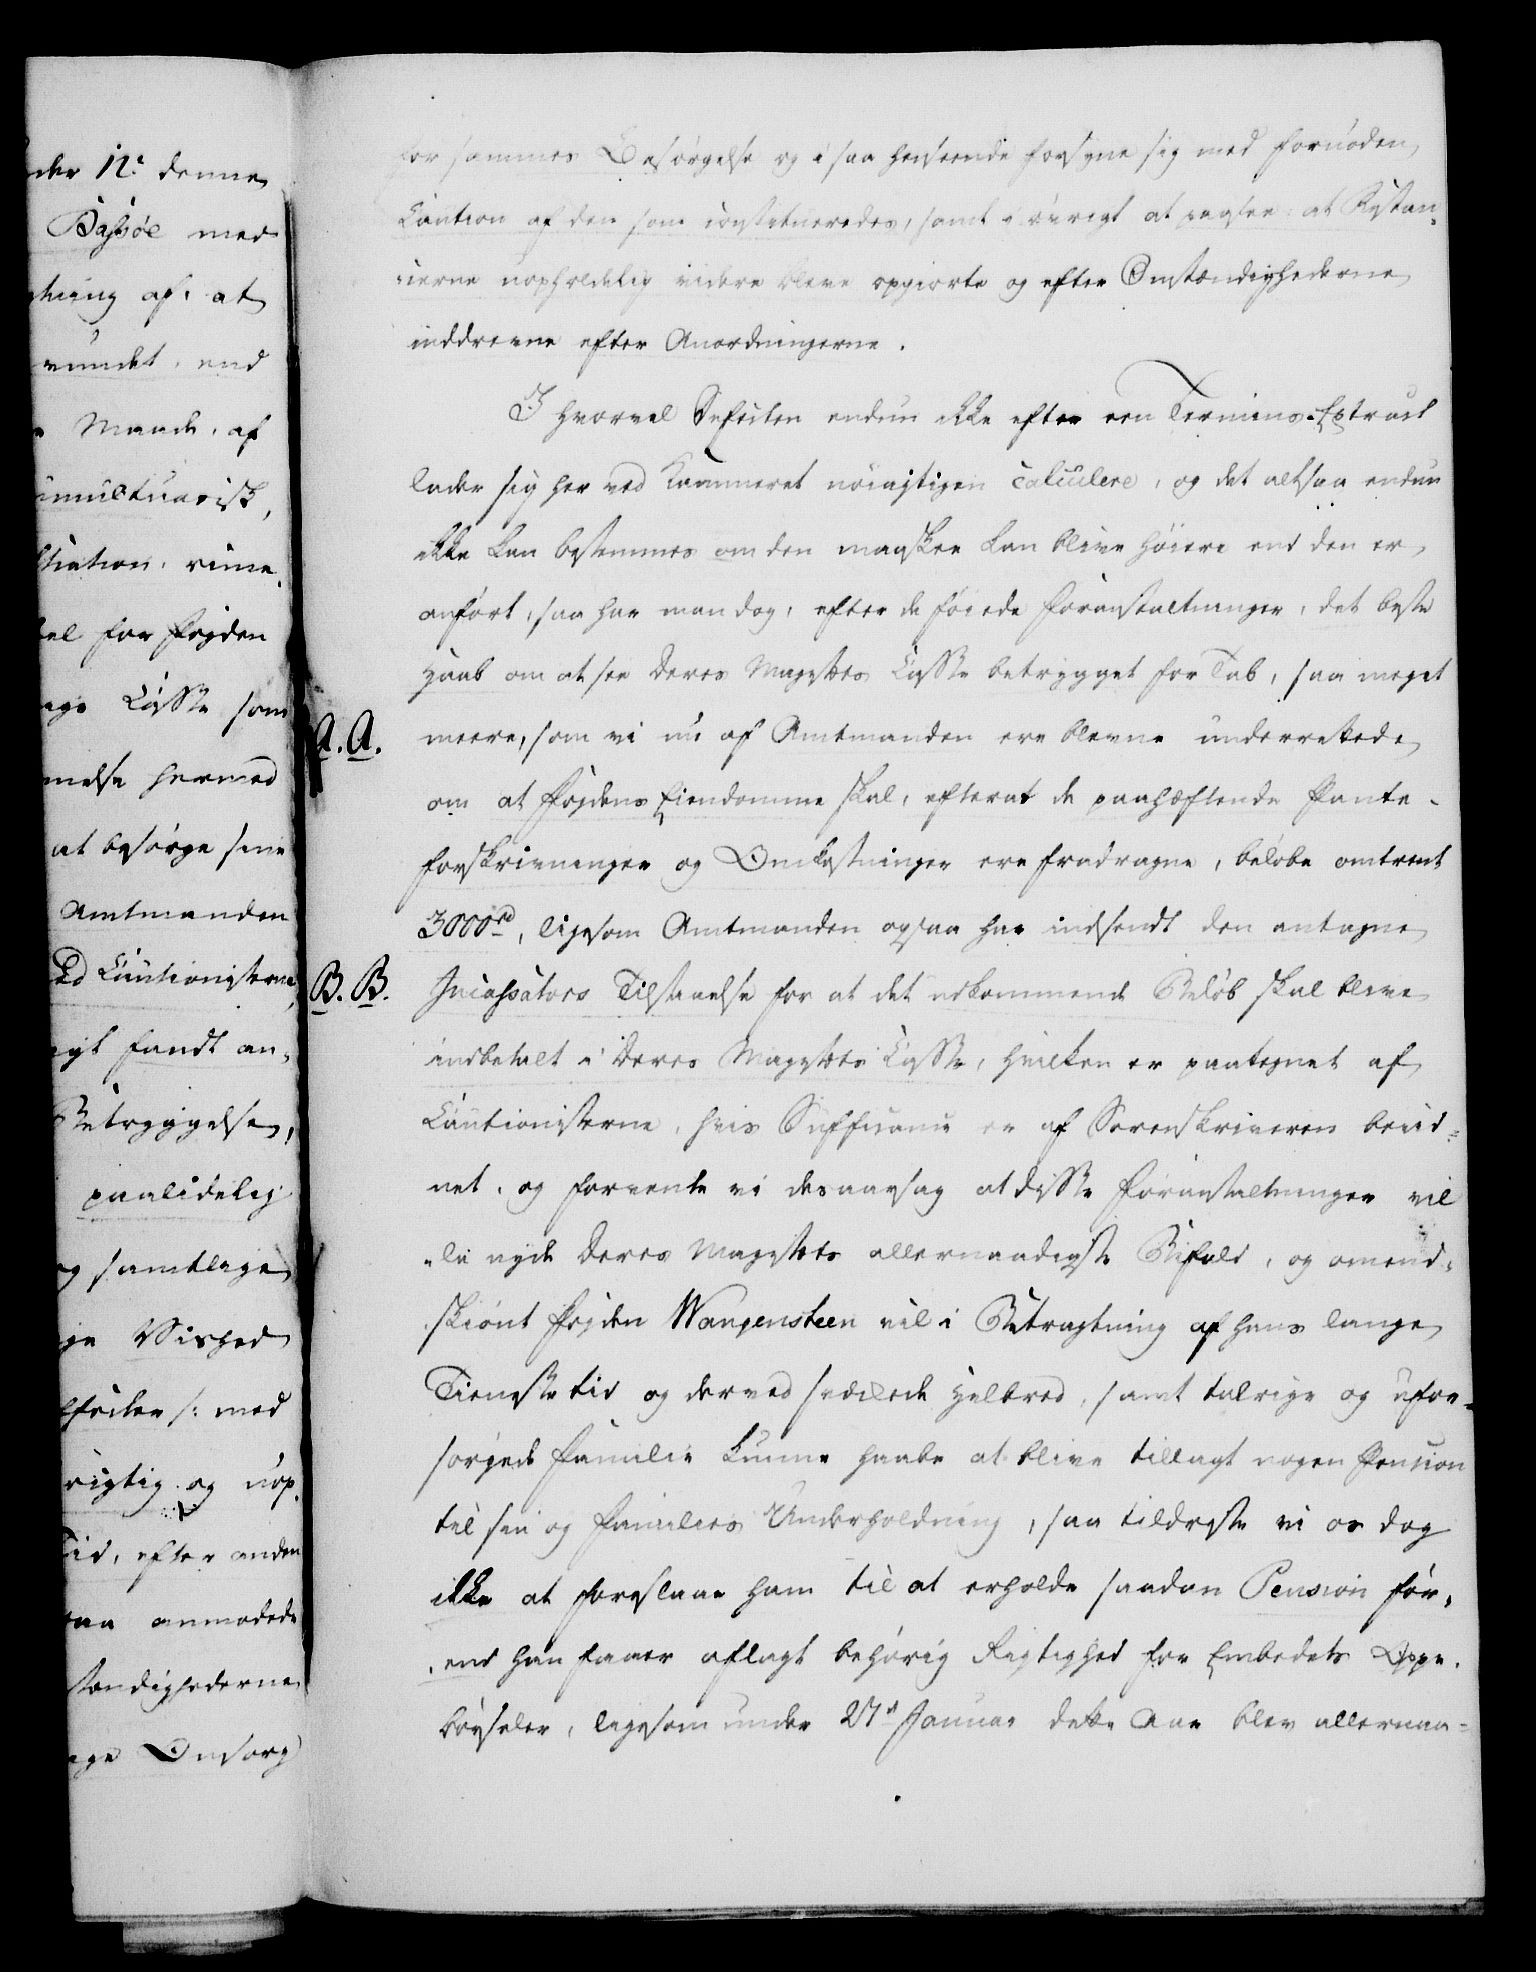 nder 12te denne
Bassøe med
tning af, at
vundet, end
Maade, af
umultuarisk,
tiation, rime
el for Fogden
age Casse som
melse hermed
at besørge sine
Amtmanden
ed Cautionisterne
igt fandt an-
Betryggelse,
paalidelig
og samtlige
ge Vished
fecten /: med
rigtig og uop-
Tid, efter anden
saa anmodede
stændighederne
ge Omsorg
for sammes Besørgelse og i saa henseende forsyne sig med fornøden
Caution af den som constitueredes, samt i øvrigt at paasee at Restan-
cierne uopholdelig videre bleve opgiorte og efter Omstændighederne
inddrevne efter Anordningerne.
I hvorvel Defecten endnu ikke efter een Termins-Extract
lader sig her ved Kammeret nøiagtigen calculere, og det altsaa endnu
ikke kan bestemmes om den maaskee kan blive høiere end den er
anført, saa har man dog, efter de føiede Foranstaltninger, det beste
Haab om at see Deres Majestets Casse betrygget for Tab, saa meget
A. A. meere, som vi nu af Amtmanden ere blevne underrettede
om at Fogdens Eiendomme skal, efterat de paahæftende Pante-
forskrivninger og Omkostninger ere fradragne, beløbe omtrent
3000 rd, ligesom Amtmanden ogsaa har indsendt den antagne
B. B. Incassators Tilstaaelse for at det udkommende Beløb skal blive
indbetalt i Deres Majestets Casse, hvilken er paategnet af
Cautionisterne, hvis Sufficance er af Sorenskriveren bevid-
net, og forvente vi desaarsag at disse Foranstaltninger vil
-le nyde Deres Majestets allernaadigste Bifald, og omend-
skiønt Fogden Wangensteen vil i Betragtning af hans lange
Tieneste tid og derved svækkede Helbred, samt talrige og ufor-
sørgede Familie kunne haabe at blive tillagt nogen Pension
til sin og Families Underholdning, saa tildriste vi os dog
ikke at foreslaae ham til at erholde saadan Pension før-
end han faaer aflagt behørig Rigtighed for Embedets Oppe-
børseler, ligesom under 27de Januar dette Aar blev allernaa-